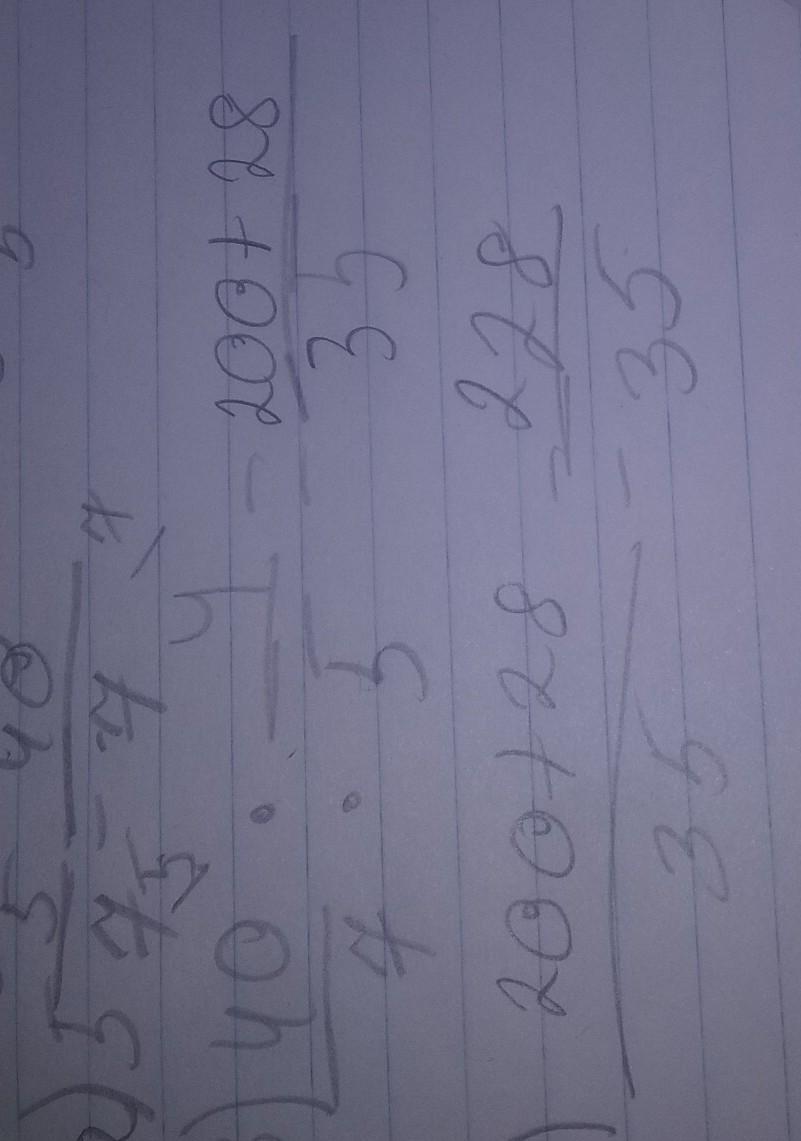 5 5/7 = 40/7
40/7 · 4/5 = 200+28/35
200+28/35 = 228/35